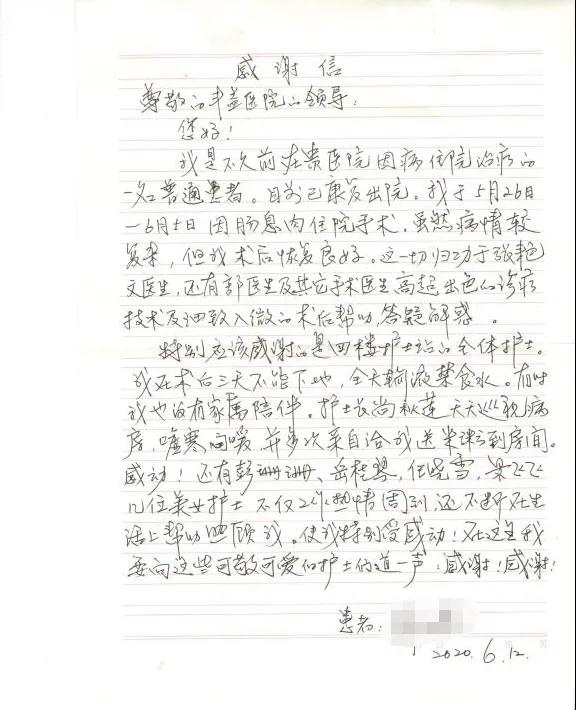 感谢信
尊敬的丰盖医院的领导:
您好!
我是不久前在贵医院因病住院治病的
一名普通患者。目前已康复出院。我于5月26日
—6月5日因肠息肉住院手术,虽然病情较
复杂,但我术后恢复良好。这一切归功于张艳
文医生,还有郭医生及其它手术医生高超出色的诊疗
技术及细致入微的术后帮助、答疑解惑。
特别应该感谢的是四楼护士站的全体护士。
我在术后三天不能下地,全天输液禁食水。有时
我也没有家属陪伴。护士长尚秋莲天天巡视病
房,嘘寒问暖,并多次亲自给我送米粥到房间。
感动!还有彭珊珊、岳桂琴,任晓雪,梁飞飞
几位美女护士不仅工作热情周到,还不断在生
活上帮助照顾我。使我特别受感动!在这里我
要向这些可敬可爱的护士们道一声:感谢!感谢!
患者:
2020.6.12.